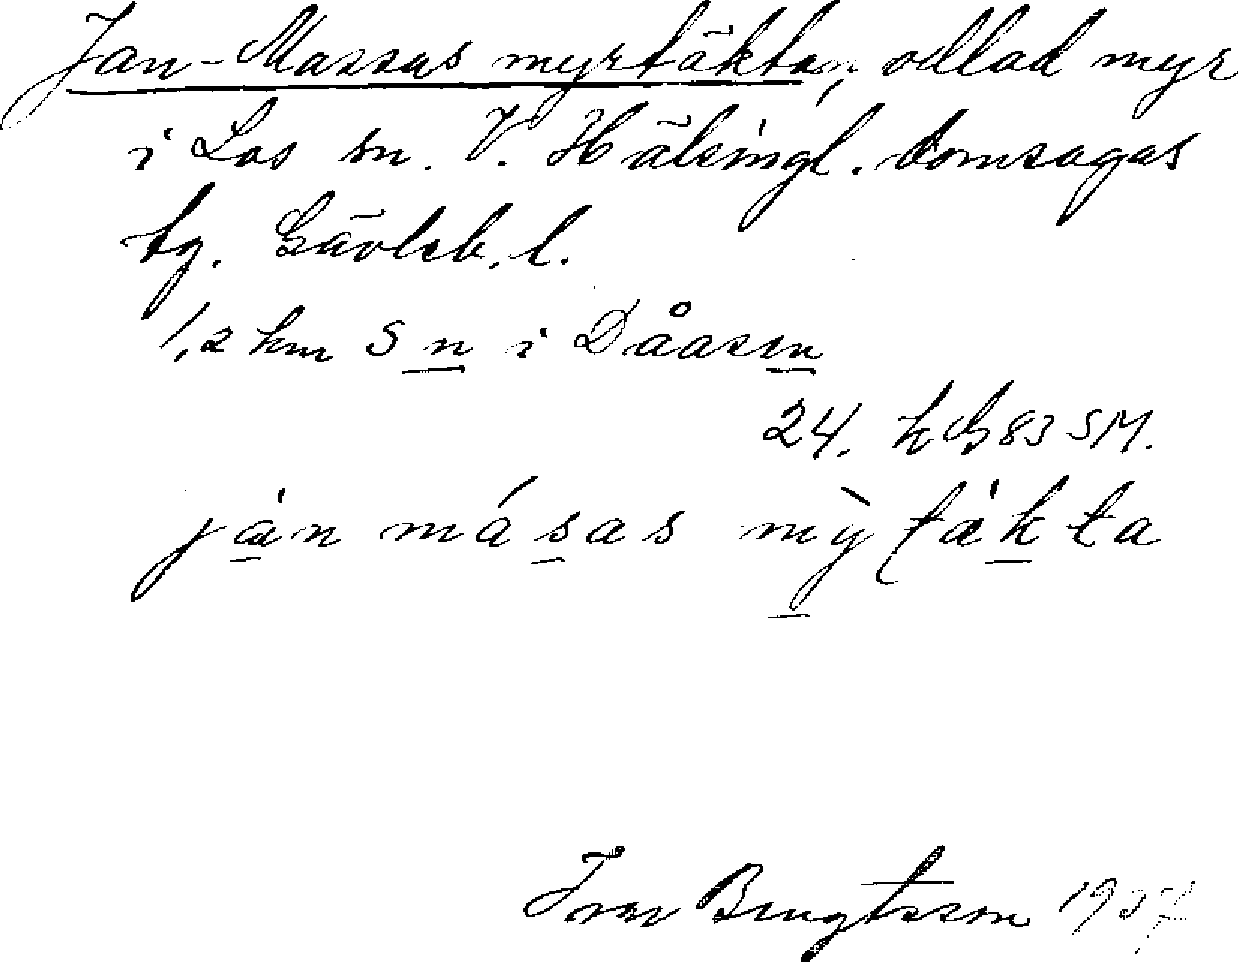 Jan-Massas myrtäkten, odlad myr
i Los sn. V. Hälsingl. domsagas
tg. Gävleb. l.
1,2 km S n i Dåasen
24. h G 83 SM.
jàn másas mỳtàkta
Ivar Bengtsson 1937